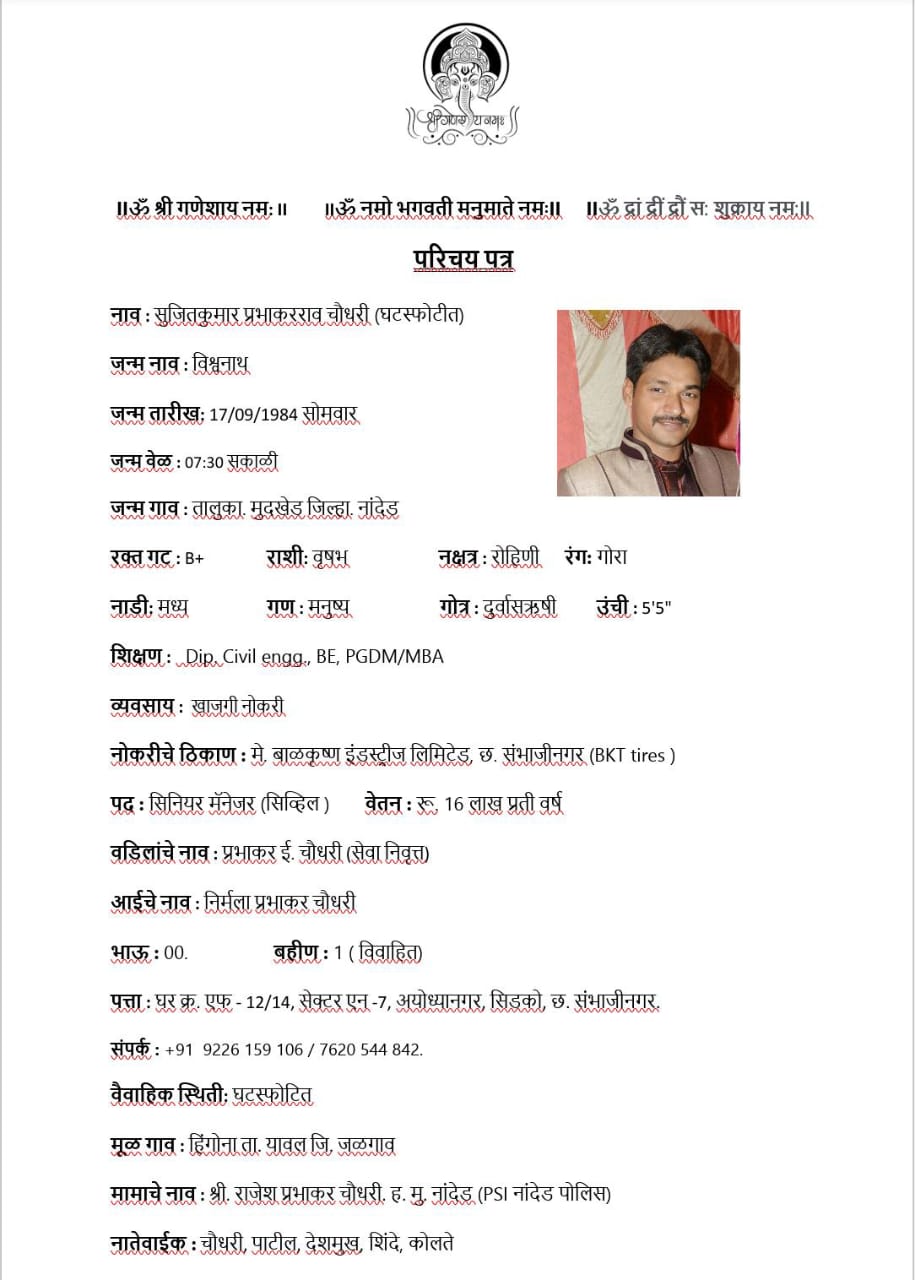 श्री गणेशाय नमः
॥ॐ श्री गणेशाय नमः॥ ॥ॐ नमो भगवती मनुमाते नमः॥ ॥ॐ द्रां द्रीं द्रौं सः शुक्राय नमः॥
परिचय पत्र
नाव : सुजितकुमार प्रभाकरराव चौधरी (घटस्फोटीत)
जन्म नाव : विश्वनाथ
जन्म तारीख: 17/09/1984 सोमवार
जन्म वेळ : 07:30 सकाळी
जन्म गाव : तालुका. मुदखेड जिल्हा. नांदेड
रक्त गट : B+ राशी: वृषभ नक्षत्र : रोहिणी रंग: गोरा
नाडी: मध्य गण : मनुष्य गोत्र : दुर्वासऋषी उंची : 5'5"
शिक्षण : Dip. Civil engg., BE, PGDM/MBA
व्यवसाय : खाजगी नोकरी
नोकरीचे ठिकाण : मे. बाळकृष्ण इंडस्ट्रीज लिमिटेड, छ. संभाजीनगर (BKT tires )
पद : सिनियर मॅनेजर (सिव्हिल ) वेतन : रू. 16 लाख प्रती वर्ष
वडिलांचे नाव : प्रभाकर ई. चौधरी (सेवा निवृत्त)
आईचे नाव : निर्मला प्रभाकर चौधरी
भाऊ : 00. बहीण : 1 ( विवाहित)
पत्ता : घर क्र. एफ - 12/14, सेक्टर एन -7, अयोध्यानगर, सिडको, छ. संभाजीनगर.
संपर्क : +91 9226 159 106 / 7620 544 842.
वैवाहिक स्थिती: घटस्फोटित
मूळ गाव : हिंगोना ता. यावल जि. जळगाव
मामाचे नाव : श्री. राजेश प्रभाकर चौधरी. ह. मु. नांदेड (PSI नांदेड पोलिस)
नातेवाईक : चौधरी, पाटील, देशमुख, शिंदे, कोलते